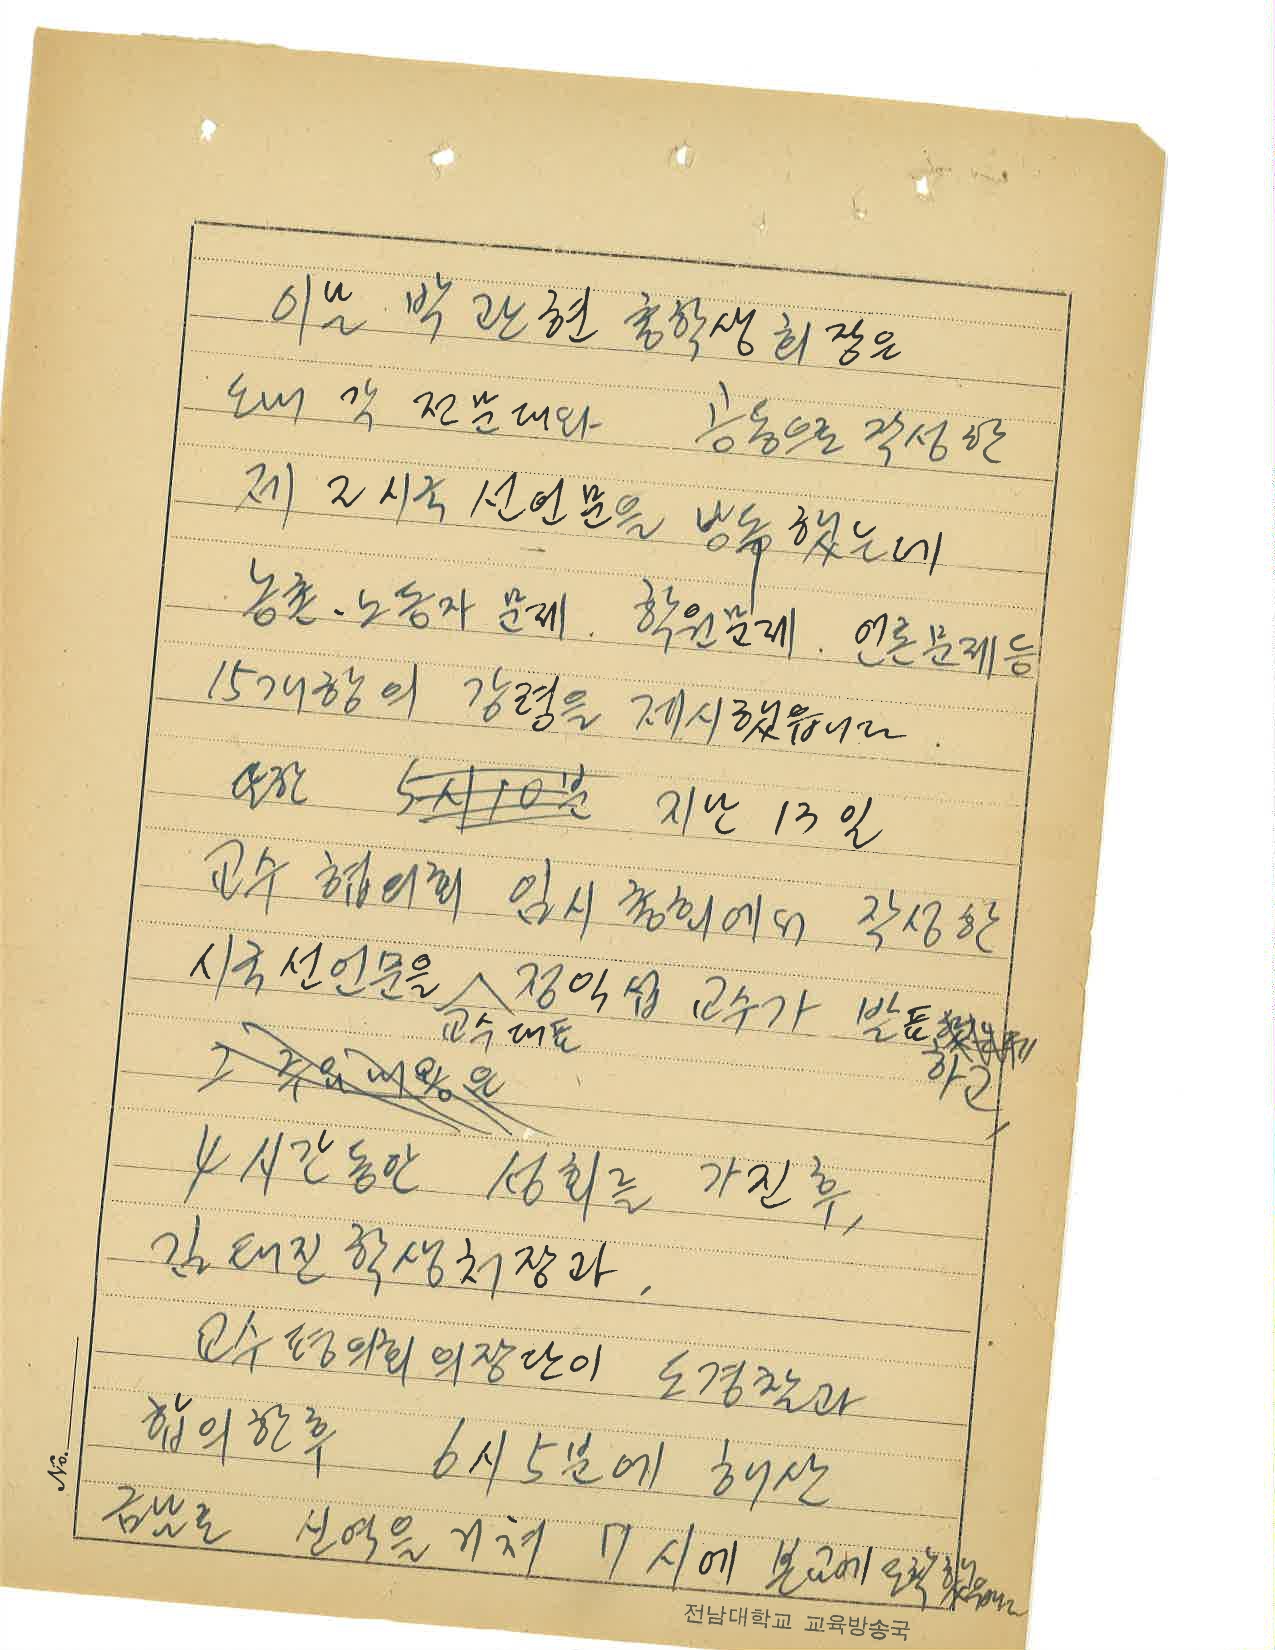 이날 박관현 총학생회장은
도내 각 전문대와 공동으로 작성한
제 2 시국 선언문을 방독했는데
농촌·노동자 문제. 학원문제. 언론문제등
15개항의 강령을 제시했읍니다.
또한 5시10분 지난 13일
교수 협의회 임시총회에서 작성한
시국선언문을 정익섭 교수가 발표했는데
교수대표 하고,
그 주요내용은
4시간동안 성회를 가진후,
김태진 학생처장과,
교수평의회 의장단이 도경찰과
협의한후 6시 5분에 해산
금남로 신역을 거쳐 7시에 본교에 도착했읍니다
No.
전남대학교 교육방송국